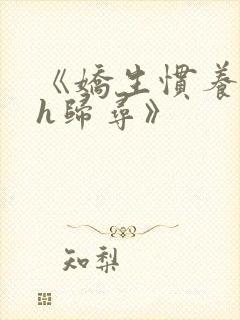 《嬌生慣養
h歸尋》
知梨